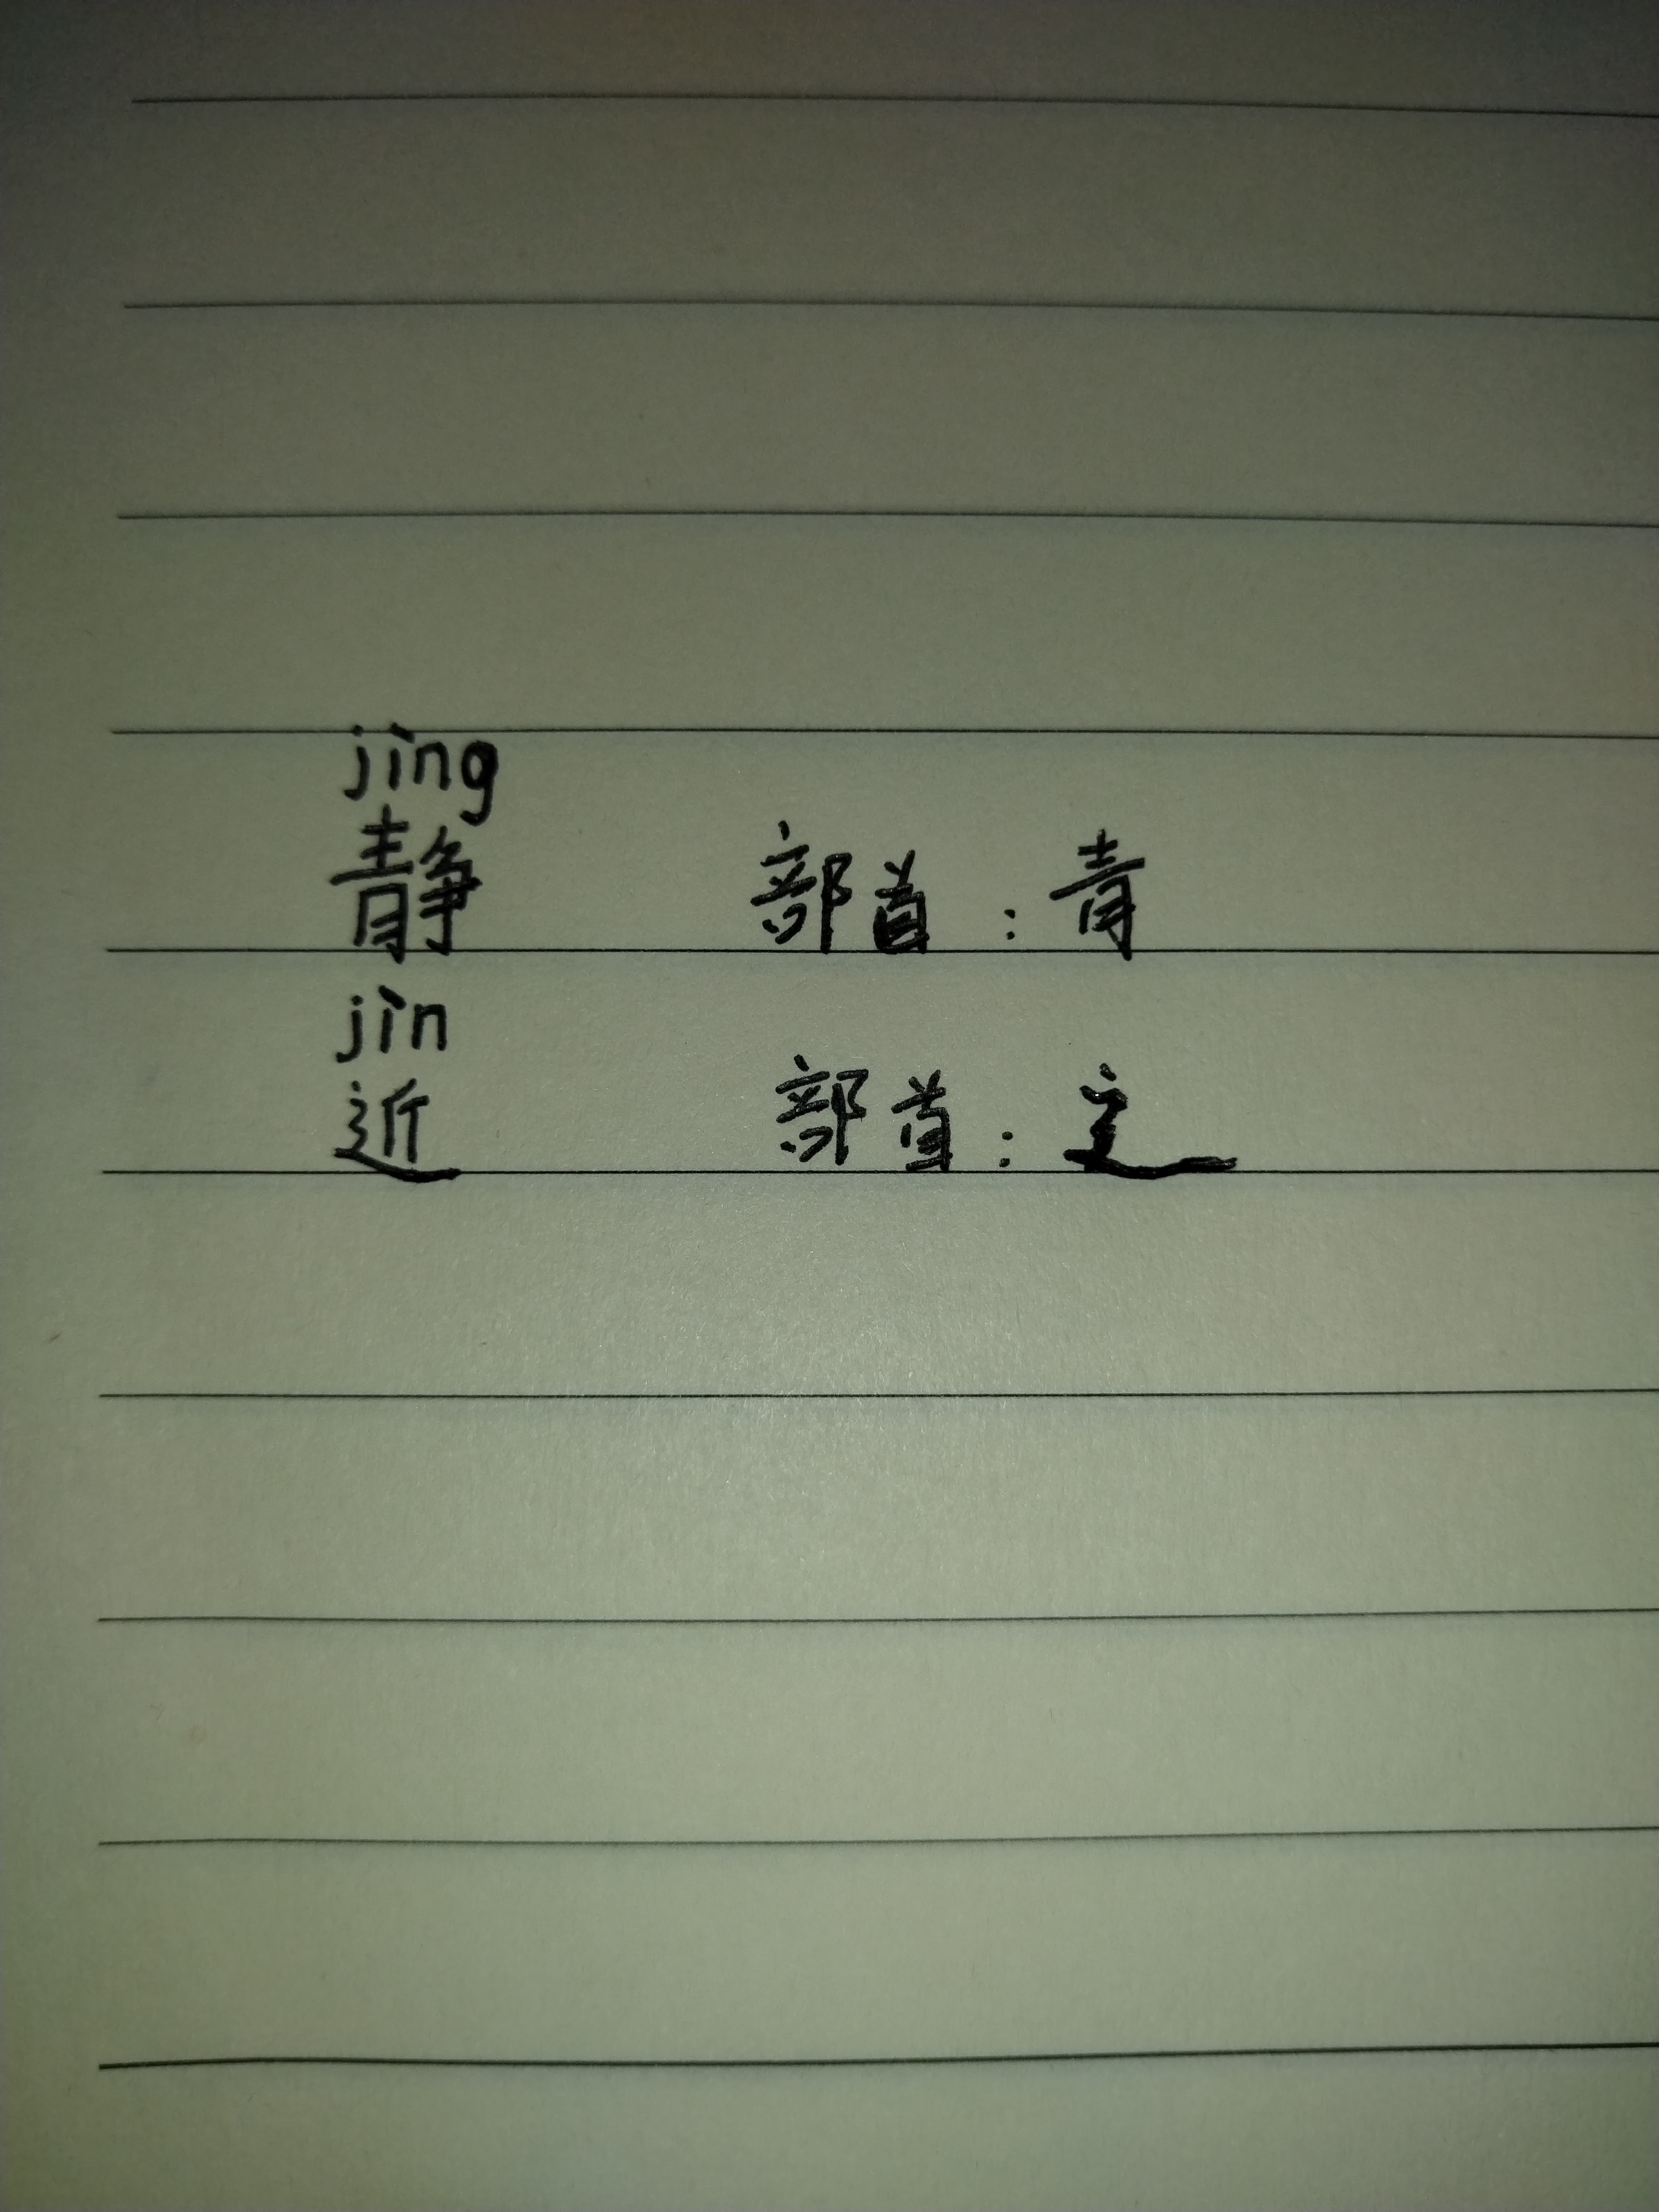 jìng
静 部首：青
jìn
近 部首：辶